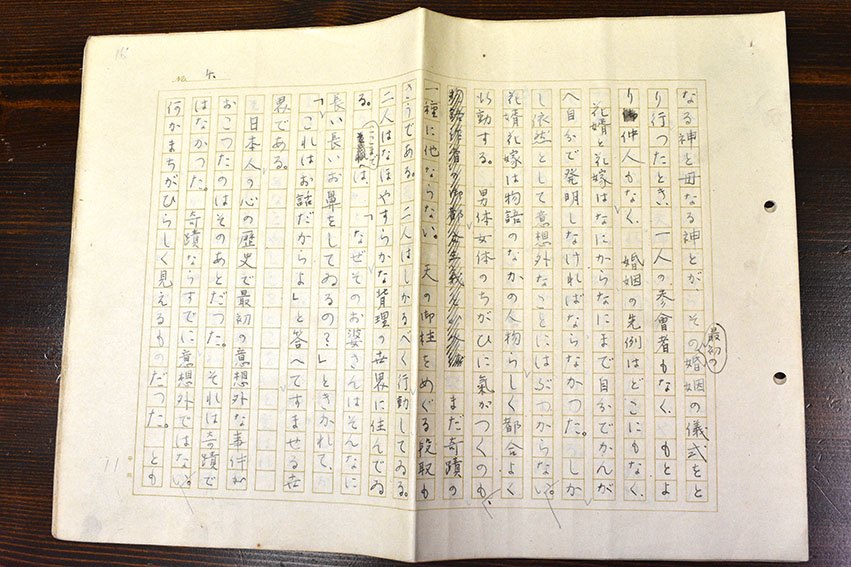 なる神と母なる神とが、その最初の婚姻の儀式をと
り行つたとき、一人の参會者もなく、もとよ
り仲人もなく、婚姻の先例はどこにもなく、
花婿と花嫁はなにからなにまで自分でかんが
へ自分で発明しなければならなかつた。しか
し依然として意想外なことにはぶつからない。
花婿花嫁は物語のなかの人物らしく都合よく
行動する。男体女体のちがひに氣がつくのも、
まだ奇蹟の
一種に他ならない。天の御柱をめぐる段取も
さうである。二人はしかるべく行動してゐる。
二人はなほやすらかな背理の世界に住んでゐ
る。ここまでは、「なぜそのお婆さんはそんなに
長い長いお鼻をしてゐるの?」ときかれて、
「これはお話だからよ」と答へてすませる世
界である。
日本人の心の歴史で最初の意想外な事件が
おこつたのはそのあとだつた。それは奇蹟で
はなかつた。奇蹟ならすでに意想外ではない。
何かまちがひらしく見えるものだつた。とも
No.
11